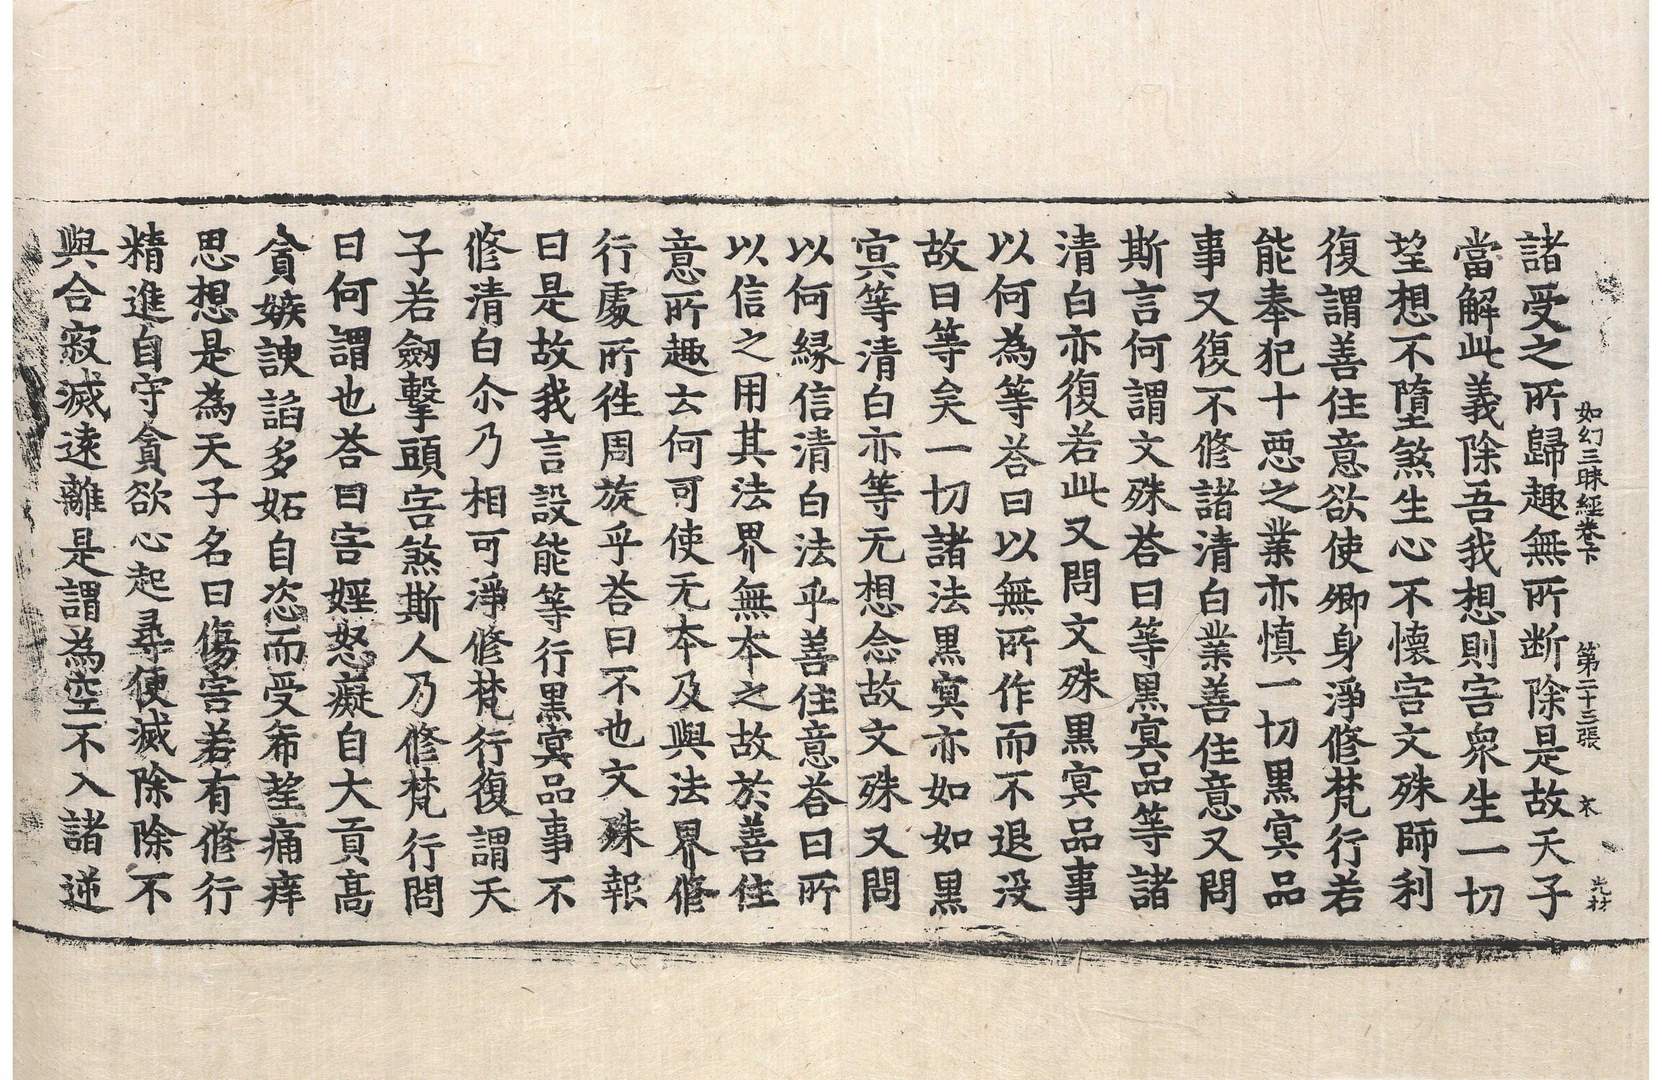 如幻三昧經卷下　第二十三張　末　光材
諸受之所歸趣無所断除是故天子
當解此義除吾我想則害衆生一切
望想不墮煞生心不懷害文殊師利
復謂善住意欲使卿身淨修梵行若
能奉犯十惡之業亦慎一切黒冥品
事又復不修諸清白業善住意又問
斯言何謂文殊荅曰等黒冥品等諸
清白亦復若此又問文殊黒冥品事
以何為等荅曰以無所作而不退没
故曰等矣一切諸法黒冥亦如如黒
冥等清白亦等无想念故文殊又問
以何縁信清白法乎善住意荅曰所
以信之用其法界無本之故於善住
意所趣去何可使无本及與法界修
行處所徃周旋乎荅曰不也文殊報
曰是故我言設能等行黒冥品事不
修清白尒乃相可淨修梵行復謂天
子若劒擊頭害煞斯人乃修梵行問
曰何謂也荅曰害婬怒癡自大貢高
貪嫉諛諂多妬自恣而受希望痛痒
思想是為天子名曰傷害若有修行
精進自守貪欲心起尋便滅除除不
與合寂滅遠離是謂為空不入諸逆